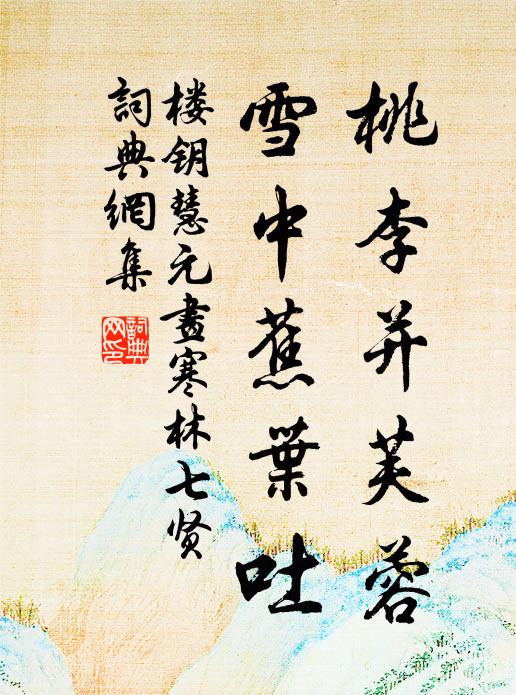 桃李并芙蓉
雪中蕉葉吐
楼钥慧元畫寒林七贤
詞典網集
詞典网印